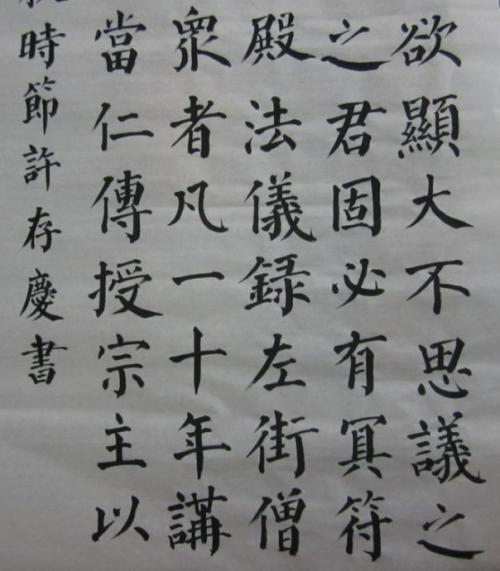 欲顯大不思議之
之君固必有冥符
殿法儀録左街僧
衆者凡一十年講
當仁傳授宗主以
時節許存慶書